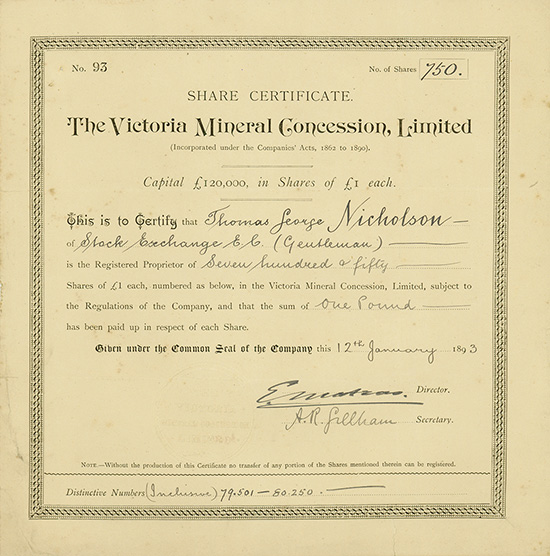 No. 93
No. of Shares 750.
SHARE CERTIFICATE.
The Victoria Mineral Concession, Limited
(Incorporated under the Companies' Acts, 1862 to 1890).
Capital £120,000, in Shares of £1 each.
This is to Certify that Thomas George Nicholson
of Stock Exchange E.C. (Gentleman)
is the Registered Proprietor of Seven hundred & fifty
Shares of £1 each, numbered as below, in the Victoria Mineral Concession, Limited, subject to
the Regulations of the Company, and that the sum of One Pound
has been paid up in respect of each Share.
Given under the Common Seal of the Company this 12th January 1893
Director.
A.R. Gillham Secretary.
NOTE.—Without the production of this Certificate no transfer of any portion of the Shares mentioned therein can be registered.
Distinctive Numbers (Inclusive) 79.501 — 80.250.